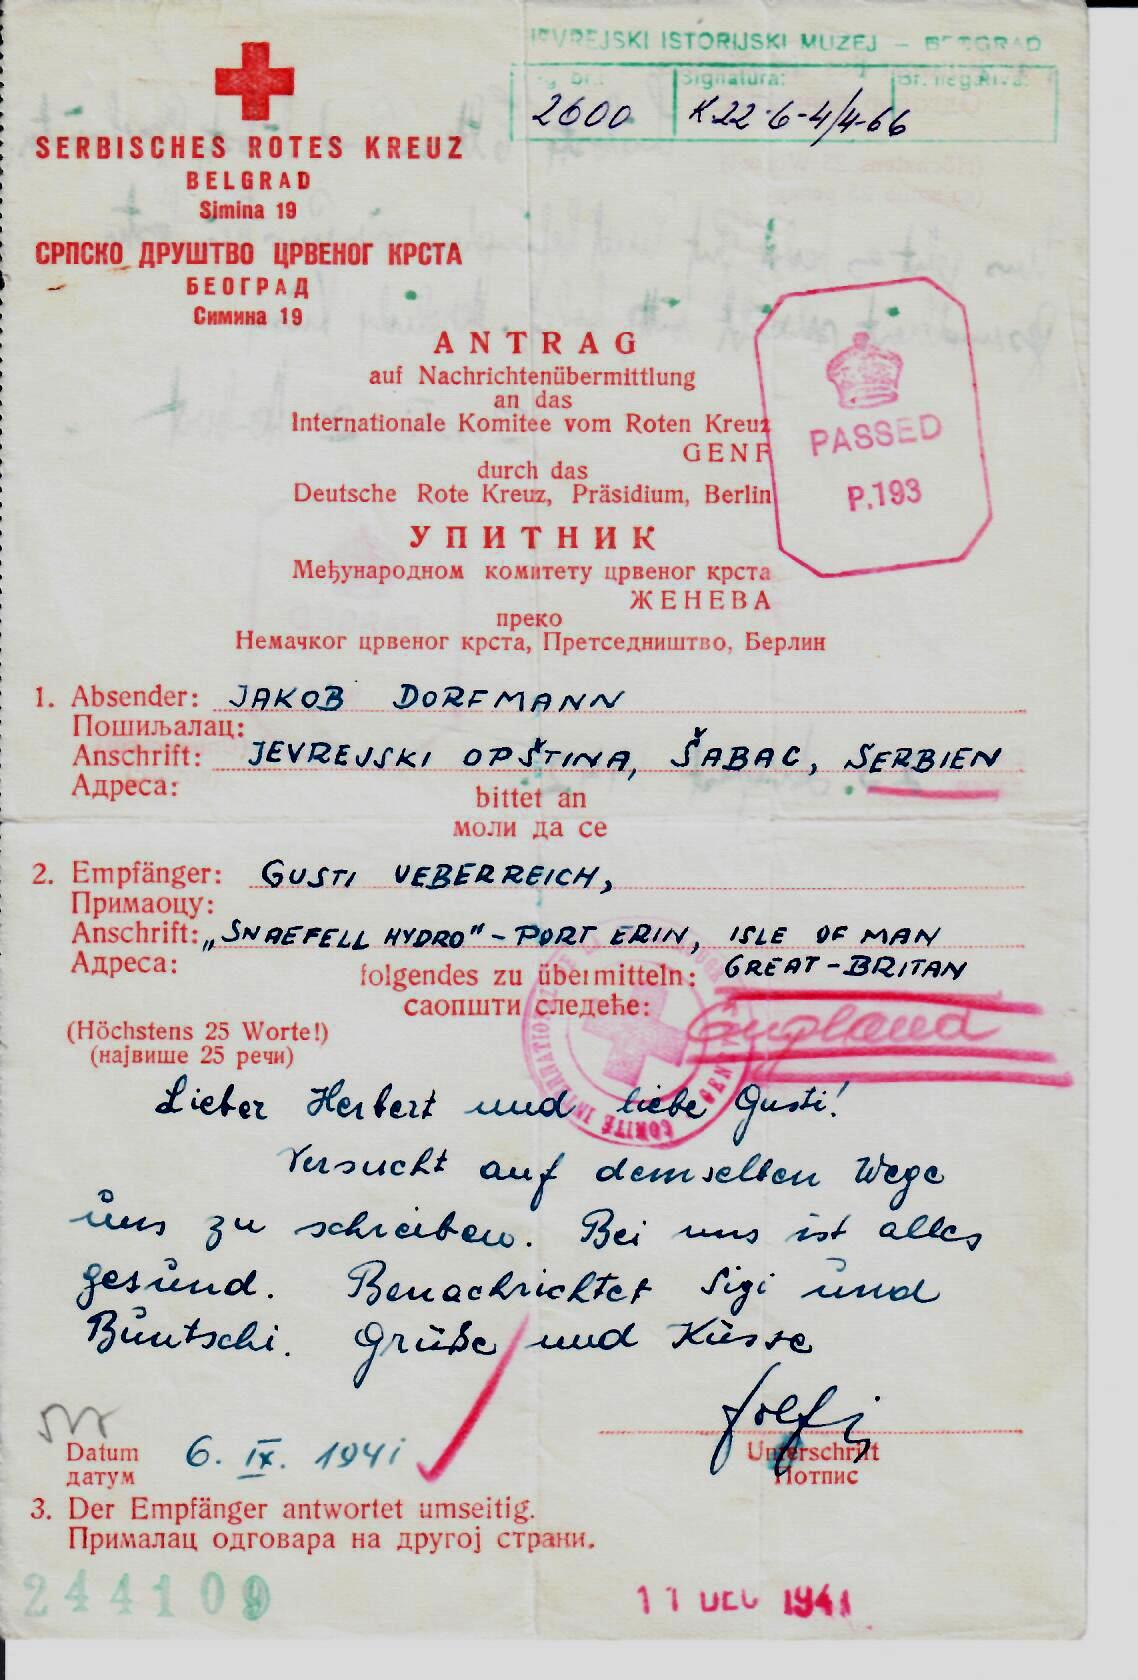 JEVREJSKI ISTORIJSKI MUZEJ — BEOGRAD
Signatura:
2600
K.22-6-4/4-66
SERBISCHES ROTES KREUZ
BELGRAD
Simina 19
СРПСКО ДРУШТВО ЦРВЕНОГ КРСТА
БЕОГРАД
Симина 19
ANTRAG
auf Nachrichtenübermittlung
an das
Internationale Komitee vom Roten Kreuz
GENF
durch das
Deutsche Rote Kreuz, Präsidium, Berlin
PASSED
P.193
УПИТНИК
Међународном комитету црвеног крста
ЖЕНЕВА
преко
Немачког црвеног крста, Претседништво, Берлин
1. Absender: JAKOB DORFMANN
Пошиљалац:
Anschrift: JEVREJSKI OPŠTINA, ŠABAC, SERBIEN
Адреса:
bittet an
моли да се
2. Empfänger: GUSTI UEBERREICH,
Примаоцу:
Anschrift: „SNAEFELL HYDRO" - PORT ERIN, ISLE OF MAN
Адреса:
GREAT-BRITAN
folgendes zu übermitteln:
саопшти следеће:
England
COMITÉ INTERNATIONAL
(Höchstens 25 Worte!)
(највише 25 речи)
Lieber Herbert und liebe Gusti!
Versucht auf demselben Wege
uns zu schreiben. Bei uns ist alles
gesund. Benachrichtet Sigi und
Buntschi. Grüße und Küsse
Datum 6. IX. 1941
датум
Unterschrift
Потпис
3. Der Empfänger antwortet umseitig.
Прималац одговара на другој страни.
244109
11 DEC 1941